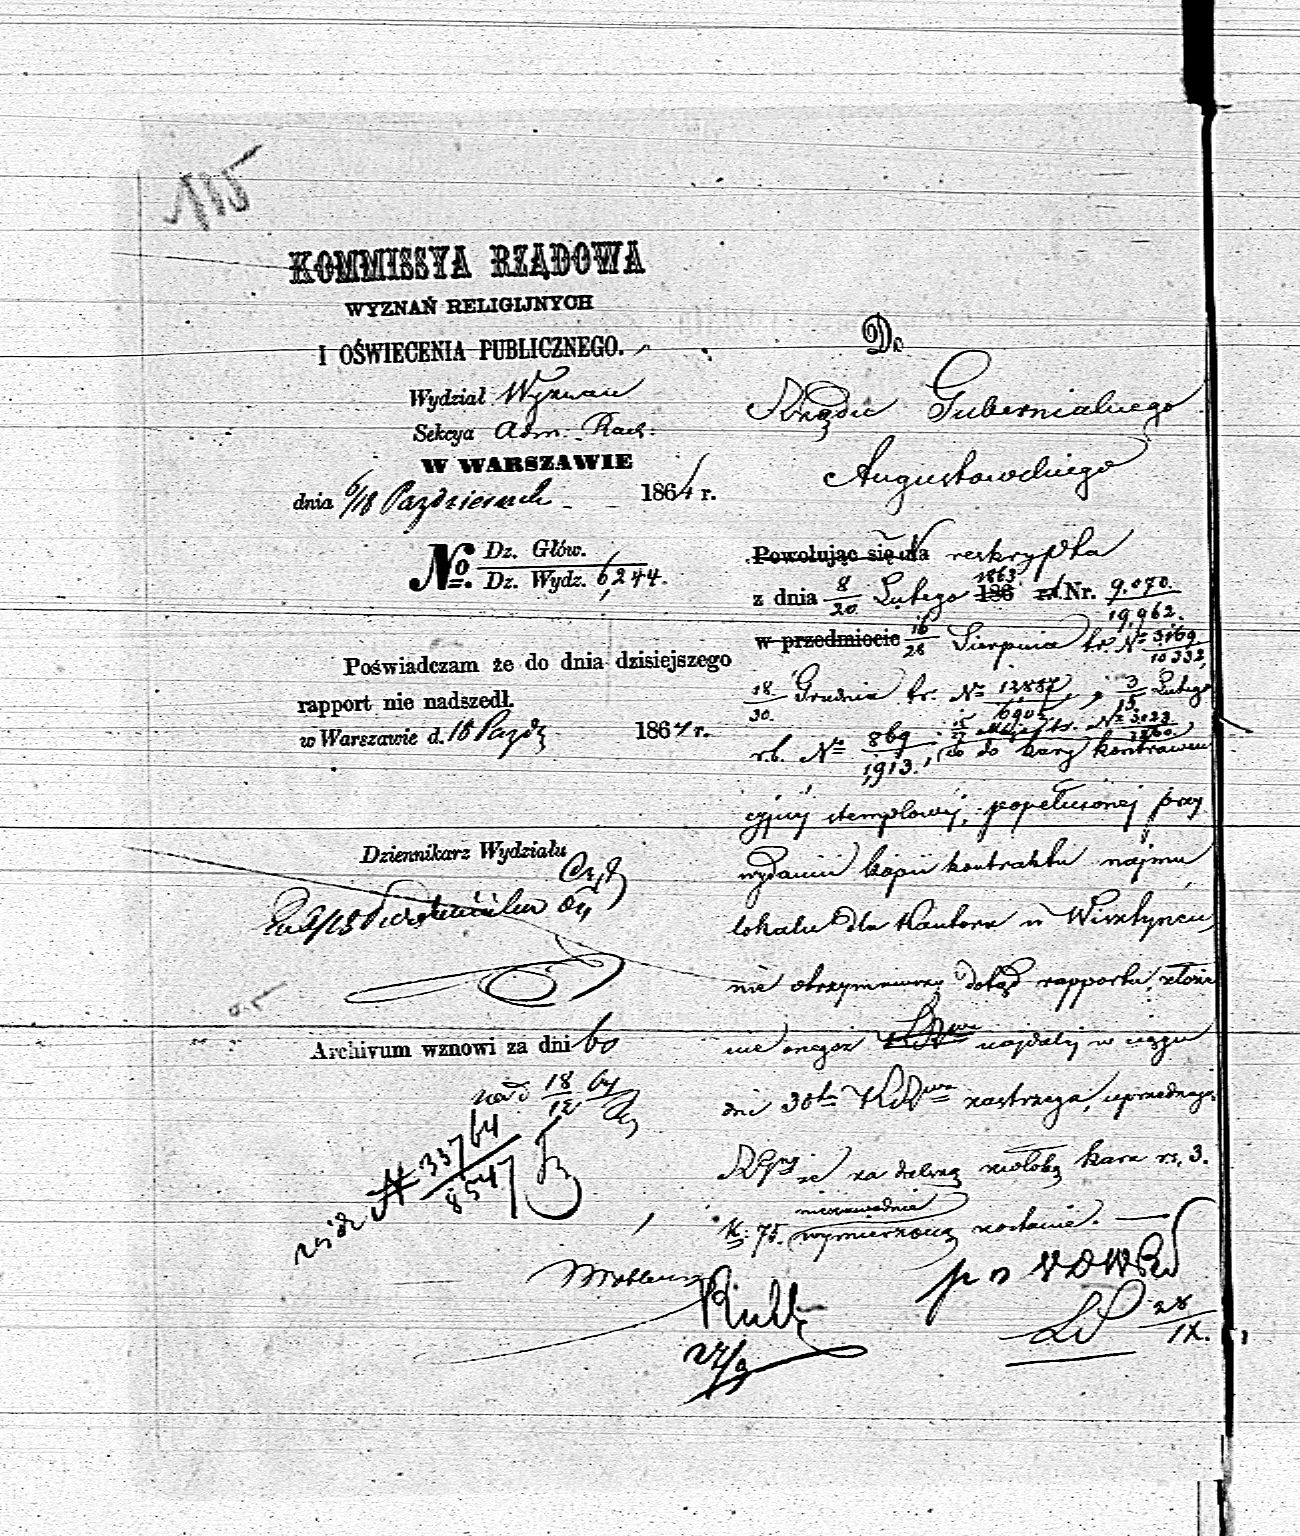 115
KOMMISSYA RZĄDOWA
WYZNAŃ RELIGIJNYCH
I OŚWIECENIA PUBLICZNEGO.
Wydział Wyznań
Sekcya Adm. Rach.
W WARSZAWIE
dnia 6/18 Październik 1864 r.
No. Dz. Głów.
Dz. Wydz. 6,244.
Poświadczam że do dnia dzisiejszego
rapport nie nadszedł.
w Warszawie d. 18 Paźdz 1864 r.
Dziennikarz Wydziału
Archivum wznowi za dni 60
18/12 64
№ 33764/8547
Do
Rządu Gubernialnego
Augustowskiego
Powołując się na reskrypta
z dnia 8/20 Lutego 1863 186 r. Nr. 9.070./19,962.
w przedmiocie 16/28 Sierpnia t.r. N 3169/10332,
18/30. Grudnia t.r. № 12857/6905, 3/15 Lutego
r.b. № 869/1,913., 15/27 Maja t.r. № 3023/3260. co do kary kontrawen
cyjnej stemplowej, popełnionej przy
wydaniu kopii kontraktu najmu
lokalu dla Kantora w Wisztyńcu,
nie otrzymawszy dotąd rapportu, złoże
nie onegoż najdalej w ciągu
dni 30tu zastrzega, uprzedzając
że za dalszą zwłokę kara rs. 3.
k. 75. niezawodnie wymierzoną zostanie.
27/9
28/IX.